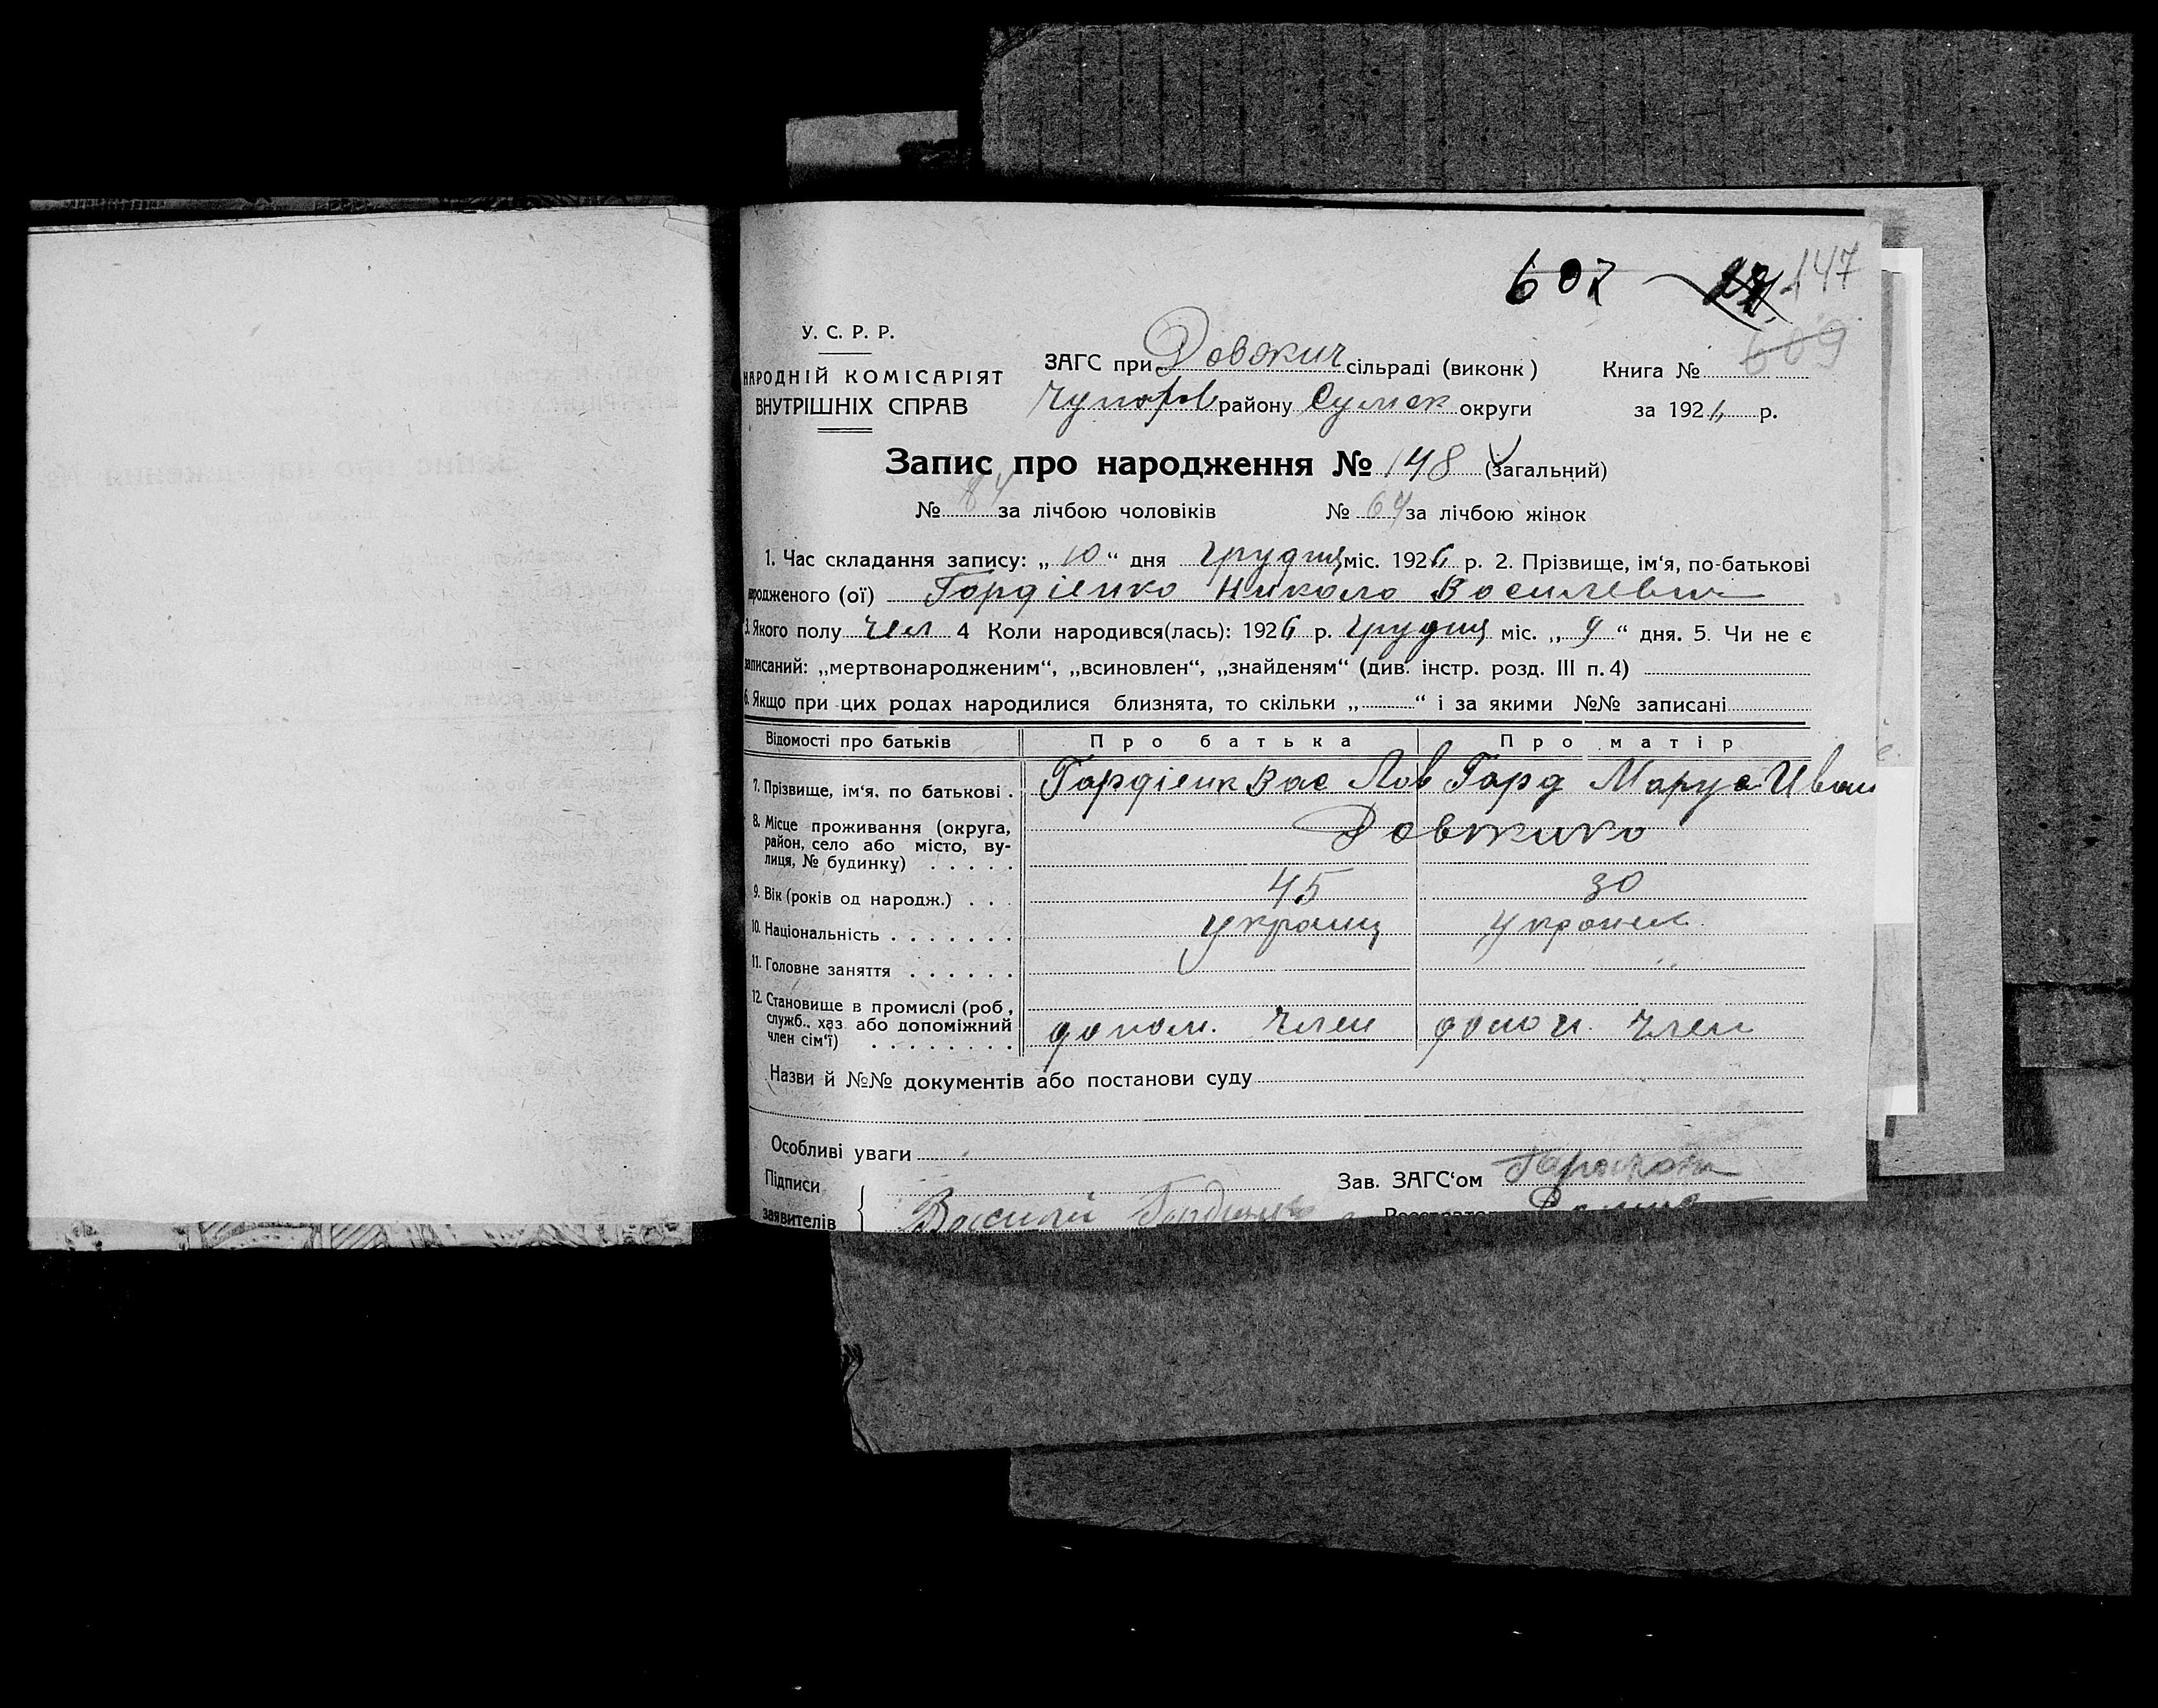 607 147
609
У. С. Р. Р.
НАРОДНІЙ КОМІСАРІЯТ
ВНУТРІШНІХ СПРАВ
ЗАГС при Довжич сільраді (виконк)
Чупахів району Сумск округи
Книга №
за 1926 р.
Запис про народження № 148 (загальний)
№ 84 за лічбою чоловіків № 64 за лічбою жінок
1. Час складання запису: „ 10 “ дня грудня міс. 1926 р. 2. Прізвище, ім‘я, по-батькові
народженого (ої) Гордієнко Никола Василевич
3. Якого полу чел 4 Коли народився(лась): 1926 р. грудня міс. „ 9 “ дня. 5. Чи не є
записаний: „мертвонародженим“, „всиновлен“, „знайденям“ (див. інстр. розд. III п. 4)
6. Якщо при цих родах народилися близнята, то скільки „ “ і за якими №№ записані
Відомості про батьків Про батька Про матір
7. Прізвище, ім‘я, по батькові . Гордієнк Вас Пав Горд Маруся Иван
8. Місце проживання (округа,
район, село або місто, ву-
лиця, № будинку) . . . . .
Довжико
9. Вік (років од народж.) . . . 45 30
10. Національність . . . . . . . украинц украинк
11. Головне заняття . . . . . .
12. Становище в промислі (роб,
служб., хаз або допоміжний
член сім‘ї) . . . . . . . . .
допом. член допом. член
Назви й №№ документів або постанови суду
Особливі уваги
Підписи
заявителів
Василій Гордиенко
Зав. ЗАГС‘ом
Реєстратор